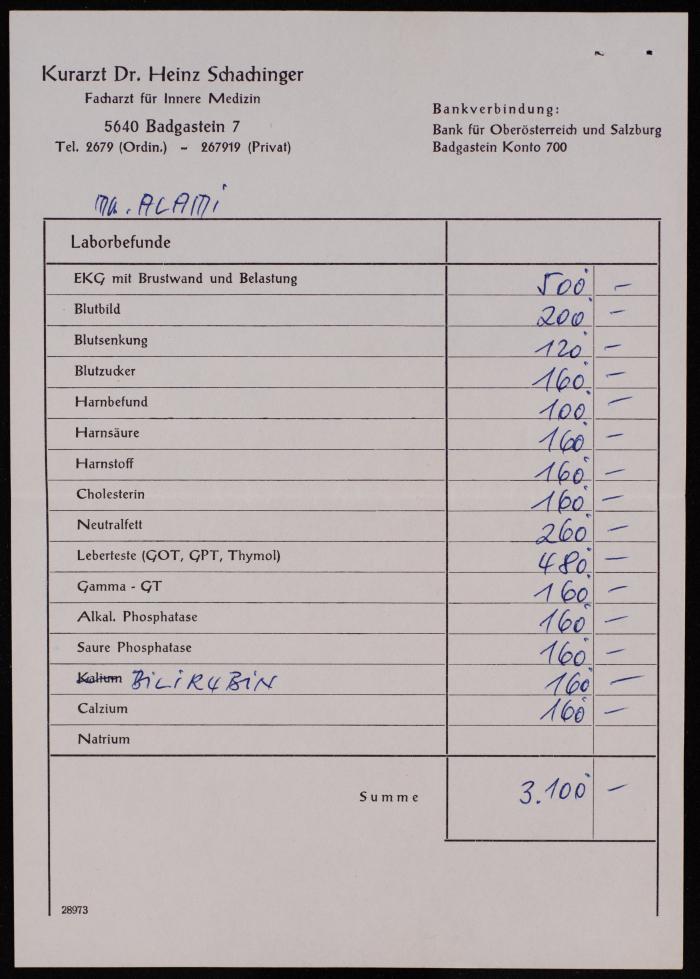 Kurarzt Dr. Heinz Schachinger
Facharzt für Innere Medizin
5640 Badgastein 7
Tel. 2679 (Ordin.) – 267919 (Privat)
Bankverbindung:
Bank für Oberösterreich und Salzburg
Badgastein Konto 700
Ma. ALAMI
Laborbefunde
EKG mit Brustwand und Belastung 500 –
Blutbild 200 –
Blutsenkung 120 –
Blutzucker 160 –
Harnbefund 100 –
Harnsäure 160 –
Harnstoff 160 –
Cholesterin 160 –
Neutralfett 260 –
Leberteste (GOT, GPT, Thymol) 480 –
Gamma - GT 160 –
Alkal. Phosphatase 160 –
Saure Phosphatase 160 –
Kalium BILIRUBIN 160 –
Calzium 160 –
Natrium
Summe 3.100 –
28973